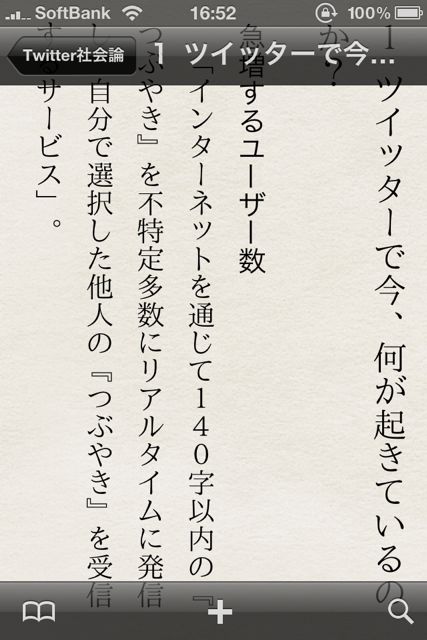 SoftBank 16:52 100%
Twitter社会論
1 ツイッターで今…
1 ツイッターで今、何が起きているの
か?
急増するユーザー数
「インターネットを通じて140字以内の『
つぶやき』を不特定多数にリアルタイムに発信
し、自分で選択した他人の『つぶやき』を受信
するサービス」。